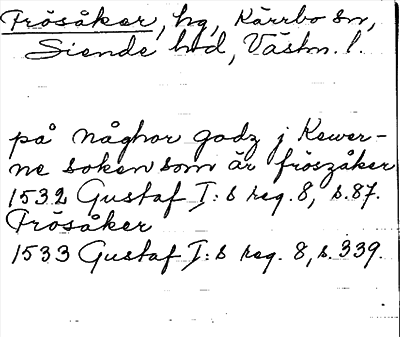 Frösåker, hg, Kärrbo sn,
Siende hd, Västm. l.
på någhor godz j Kewer-
ne soken som är fröszåker
1532 Gustaf I:s reg. 8, s. 87.
Frösåker
1533 Gustaf I:s reg. 8, s. 339.